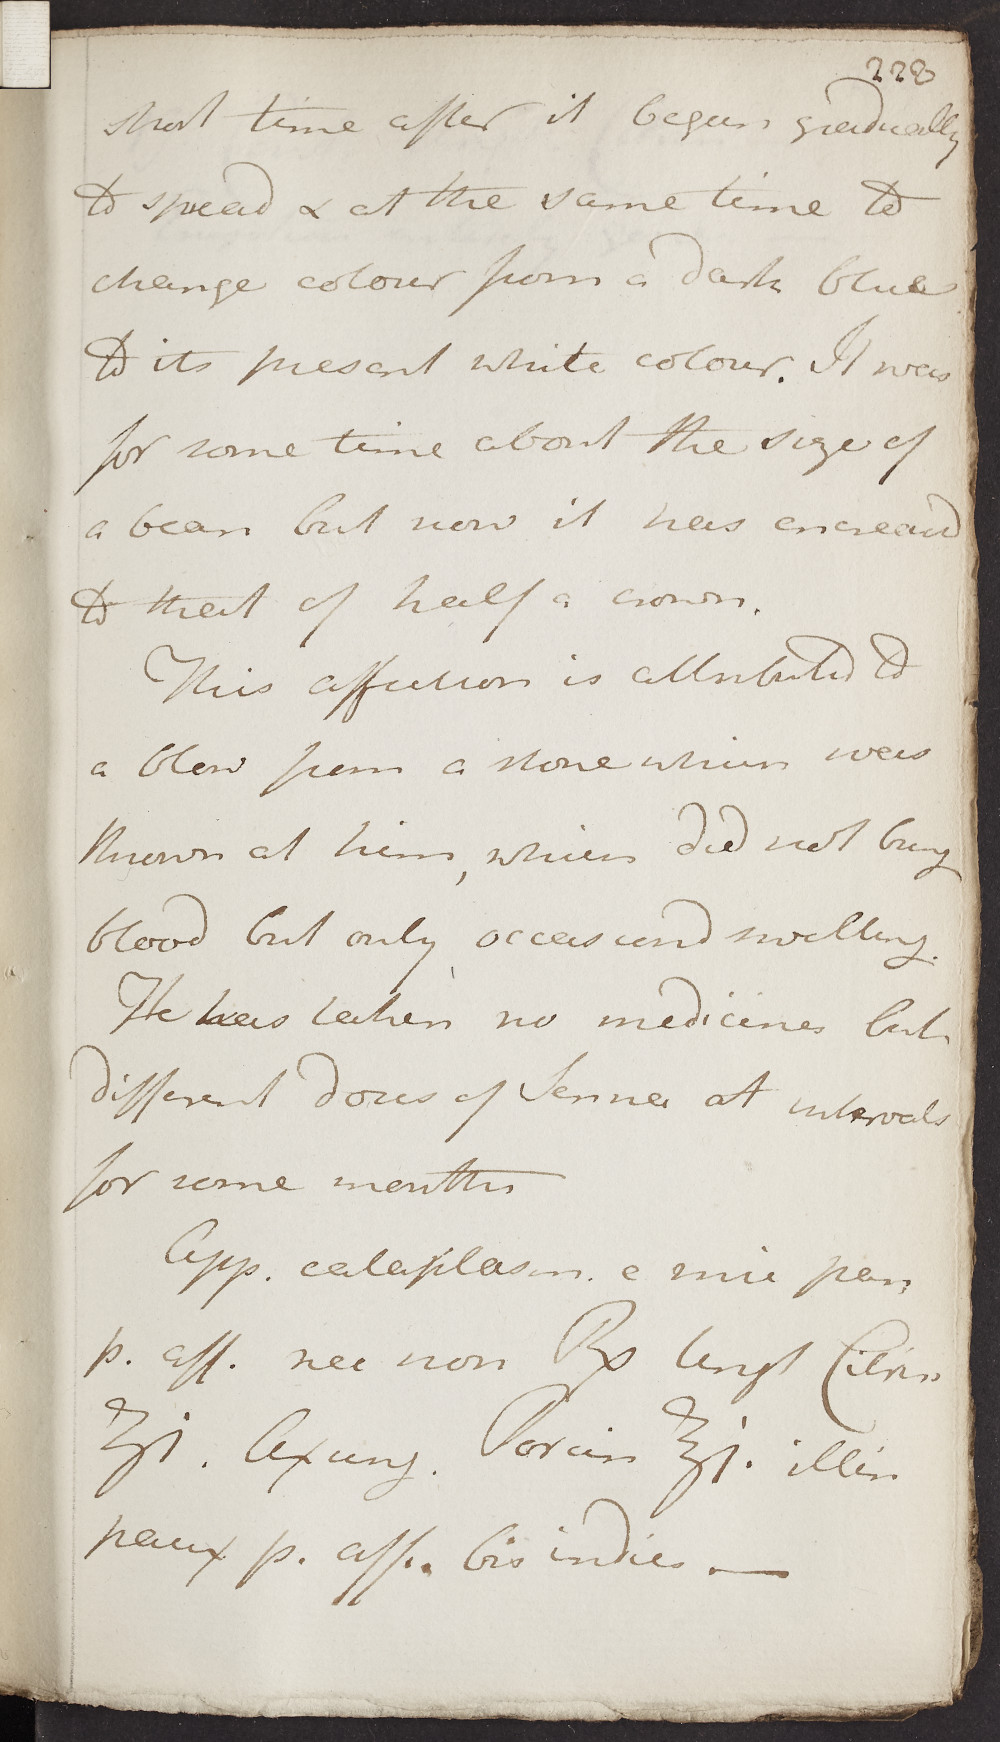 228
short time after it began gradually
to spread & at the same time to
change colour from a dark blue
to its present white colour. It was
for some time about the size of
a bean but now it has encreasd
to that of half a crown.
This affection is attributed to
a blow from a stone which was
thrown at him, which did not bring
blood but only occasiond swelling.
He has taken no medicines but
different doses of Senna at intervals
for some months
App. cataplasm. e mic pan
p. aff. nec non Rx Ungt Citrin
ʒj. Axung. Porcin ʒj. illin
paux p. aff. bis indies. —